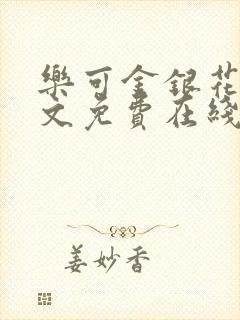 樂可金銀花
文免費在綫
姜妙香